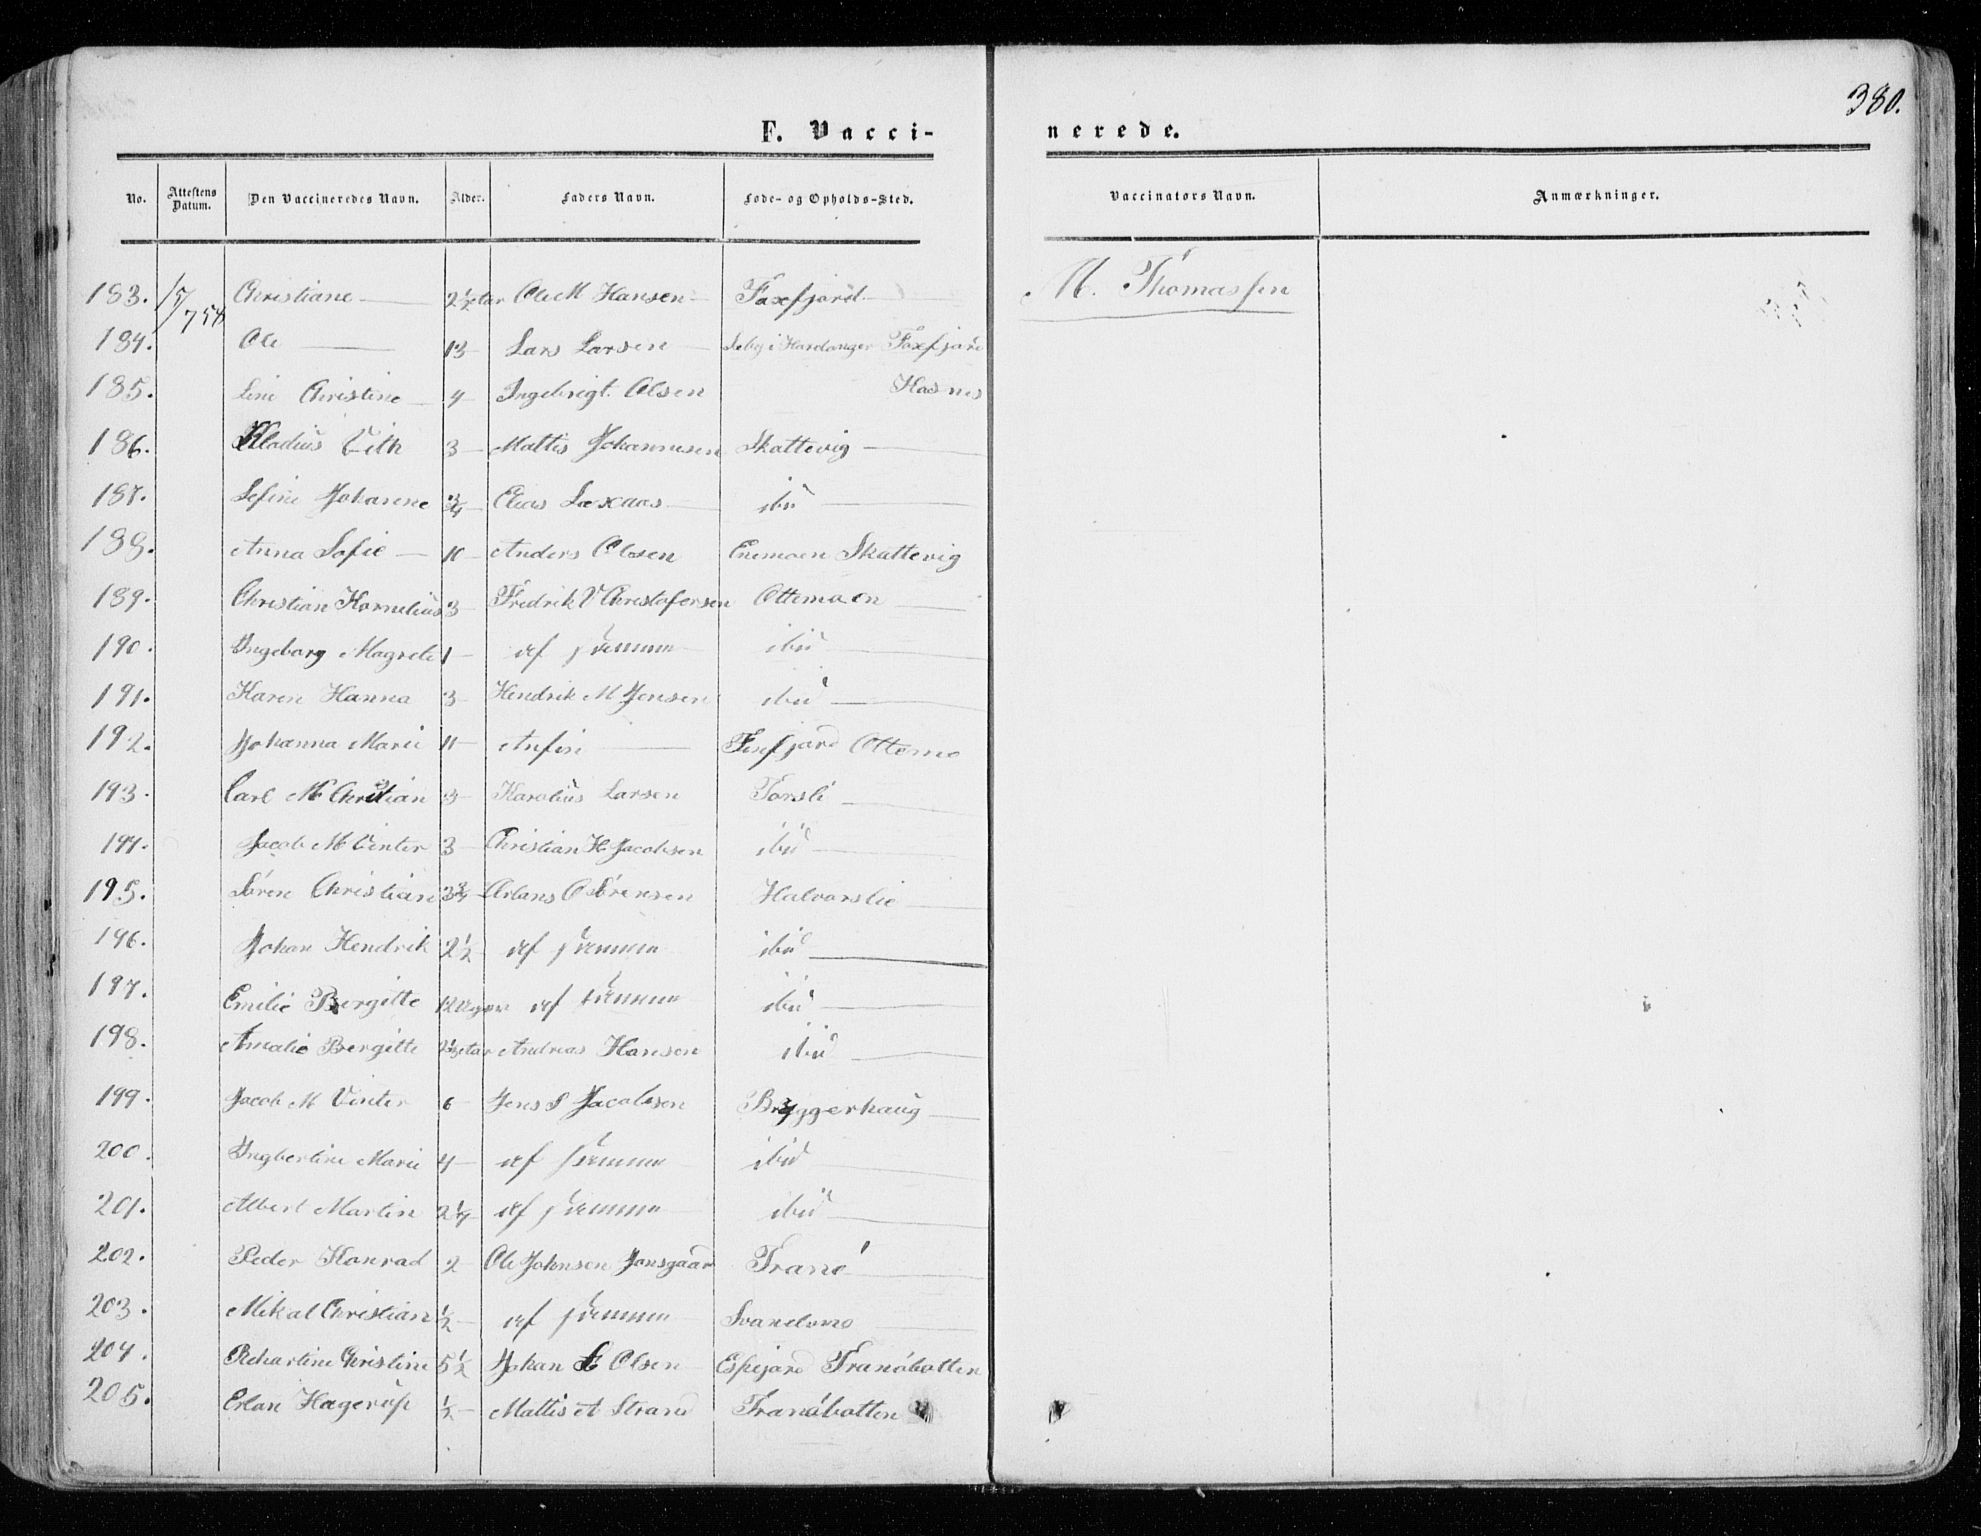 380.
F. Vaccinerede.
No. Attestens Datum. Den Vaccineredes Navn. Alder. Faders Navn. Føde- og Opholds-Sted. Vaccinators Navn. Anmærkninger.
183. 15/7 58 Christiane 2½ Aar Ole M Hansen Faxfjord M. Thomassen
184. Ole 13 Lars Larsen i Hardanger Faxfjord
185. Line Christine 4 Ingebrigt Olsen Hasnes
186. Kladius Vith 3 Mattis Johannesen Skattevig
187. Sefine Johanne ¾ Elias Laxaas ibid
188. Anna Sofie 10 Anders Olsen Enemoen Skattevig
189. Christian Kornelius 3 Fredrik V Christofersen Ottemoen
190. Ingeborg Magrete 1 af samme ibid
191. Karen Hanna 3 Hendrik M Jensen ibid
192. Johanna Marie 11 Anfin Ottemo
193. Carl M Christian 3 Karolius Larsen Torsli
194. Jacob M Vinter 3 Christian H Jacobsen ibid
195. Sören Christian 3¾ C Sörensen Halvorslie
196. Johan Hendrik 2½ af samme ibid
197. Emilie Bergitte 12 Uger af samme ibid
198. Amalie Bergitte 2½ Aar Andreas Hansen ibid
199. Jacob M Vinter 6 Jens S Jacobsen Bryggerhaug
200. Ingbertine Marie 4 af samme ibid
201. Albert Martin 2¼ af samme ibid
202. Peder Konrad 2 Ole Johnsen Jonsgaar Tranö
203. Mikal Christian ½ af samme Svandemo
204. Rikartine Christine 5½ Johan Olsen Espejord Tranöbotten
205. Erlan Hagerup ½ Mattis A Strand Tranöbotten